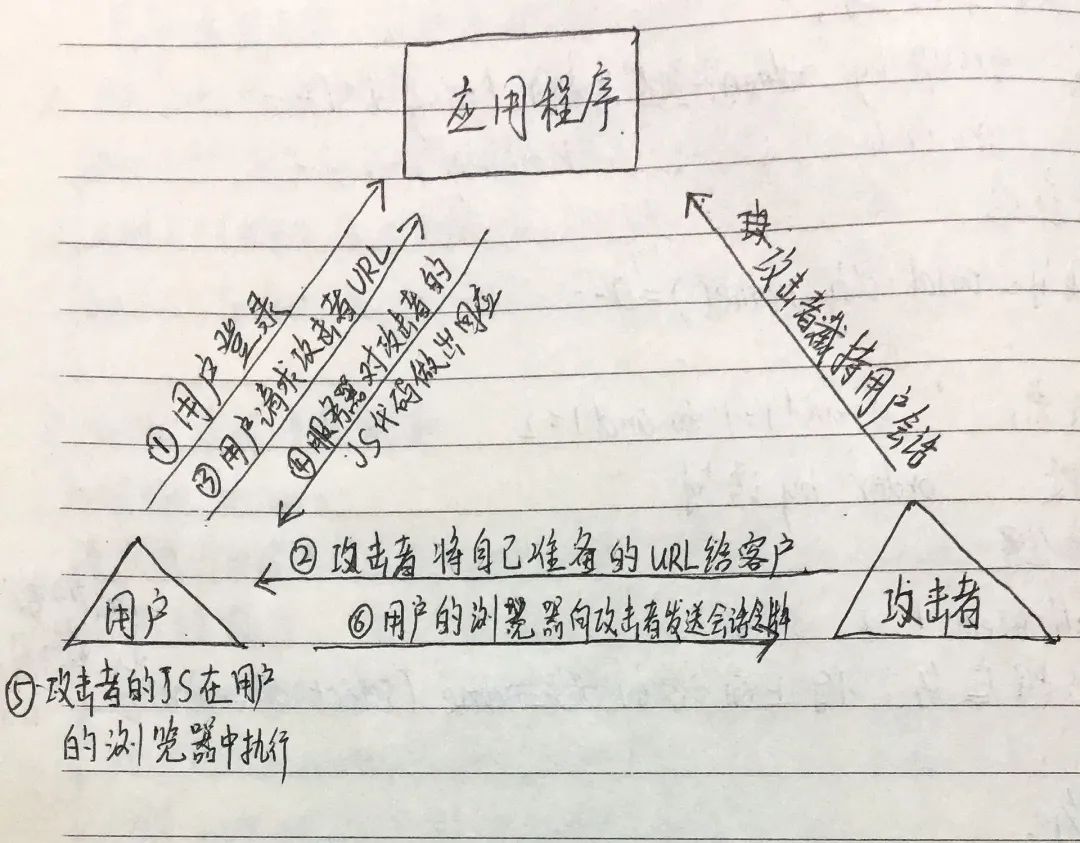 应用程序
①用户登录
③用户请求攻击者URL
④服务器对攻击者的
JS代码做出回应
攻击者劫持用户会话
②攻击者将自己准备的URL给客户
用户
⑥用户的浏览器向攻击者发送会话令牌
攻击者
⑤攻击者的JS在用户
的浏览器中执行